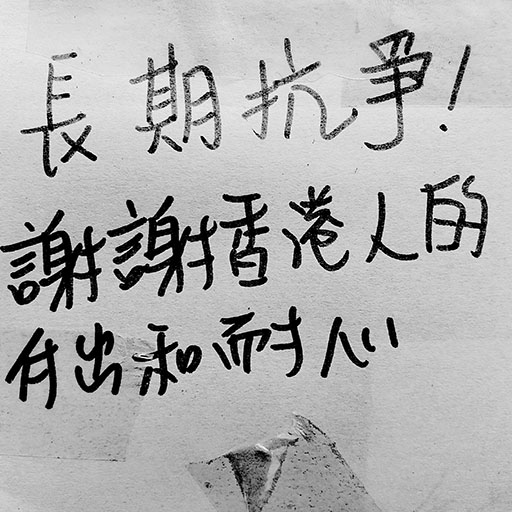 長期抗爭!
謝謝香港人的
付出和耐心